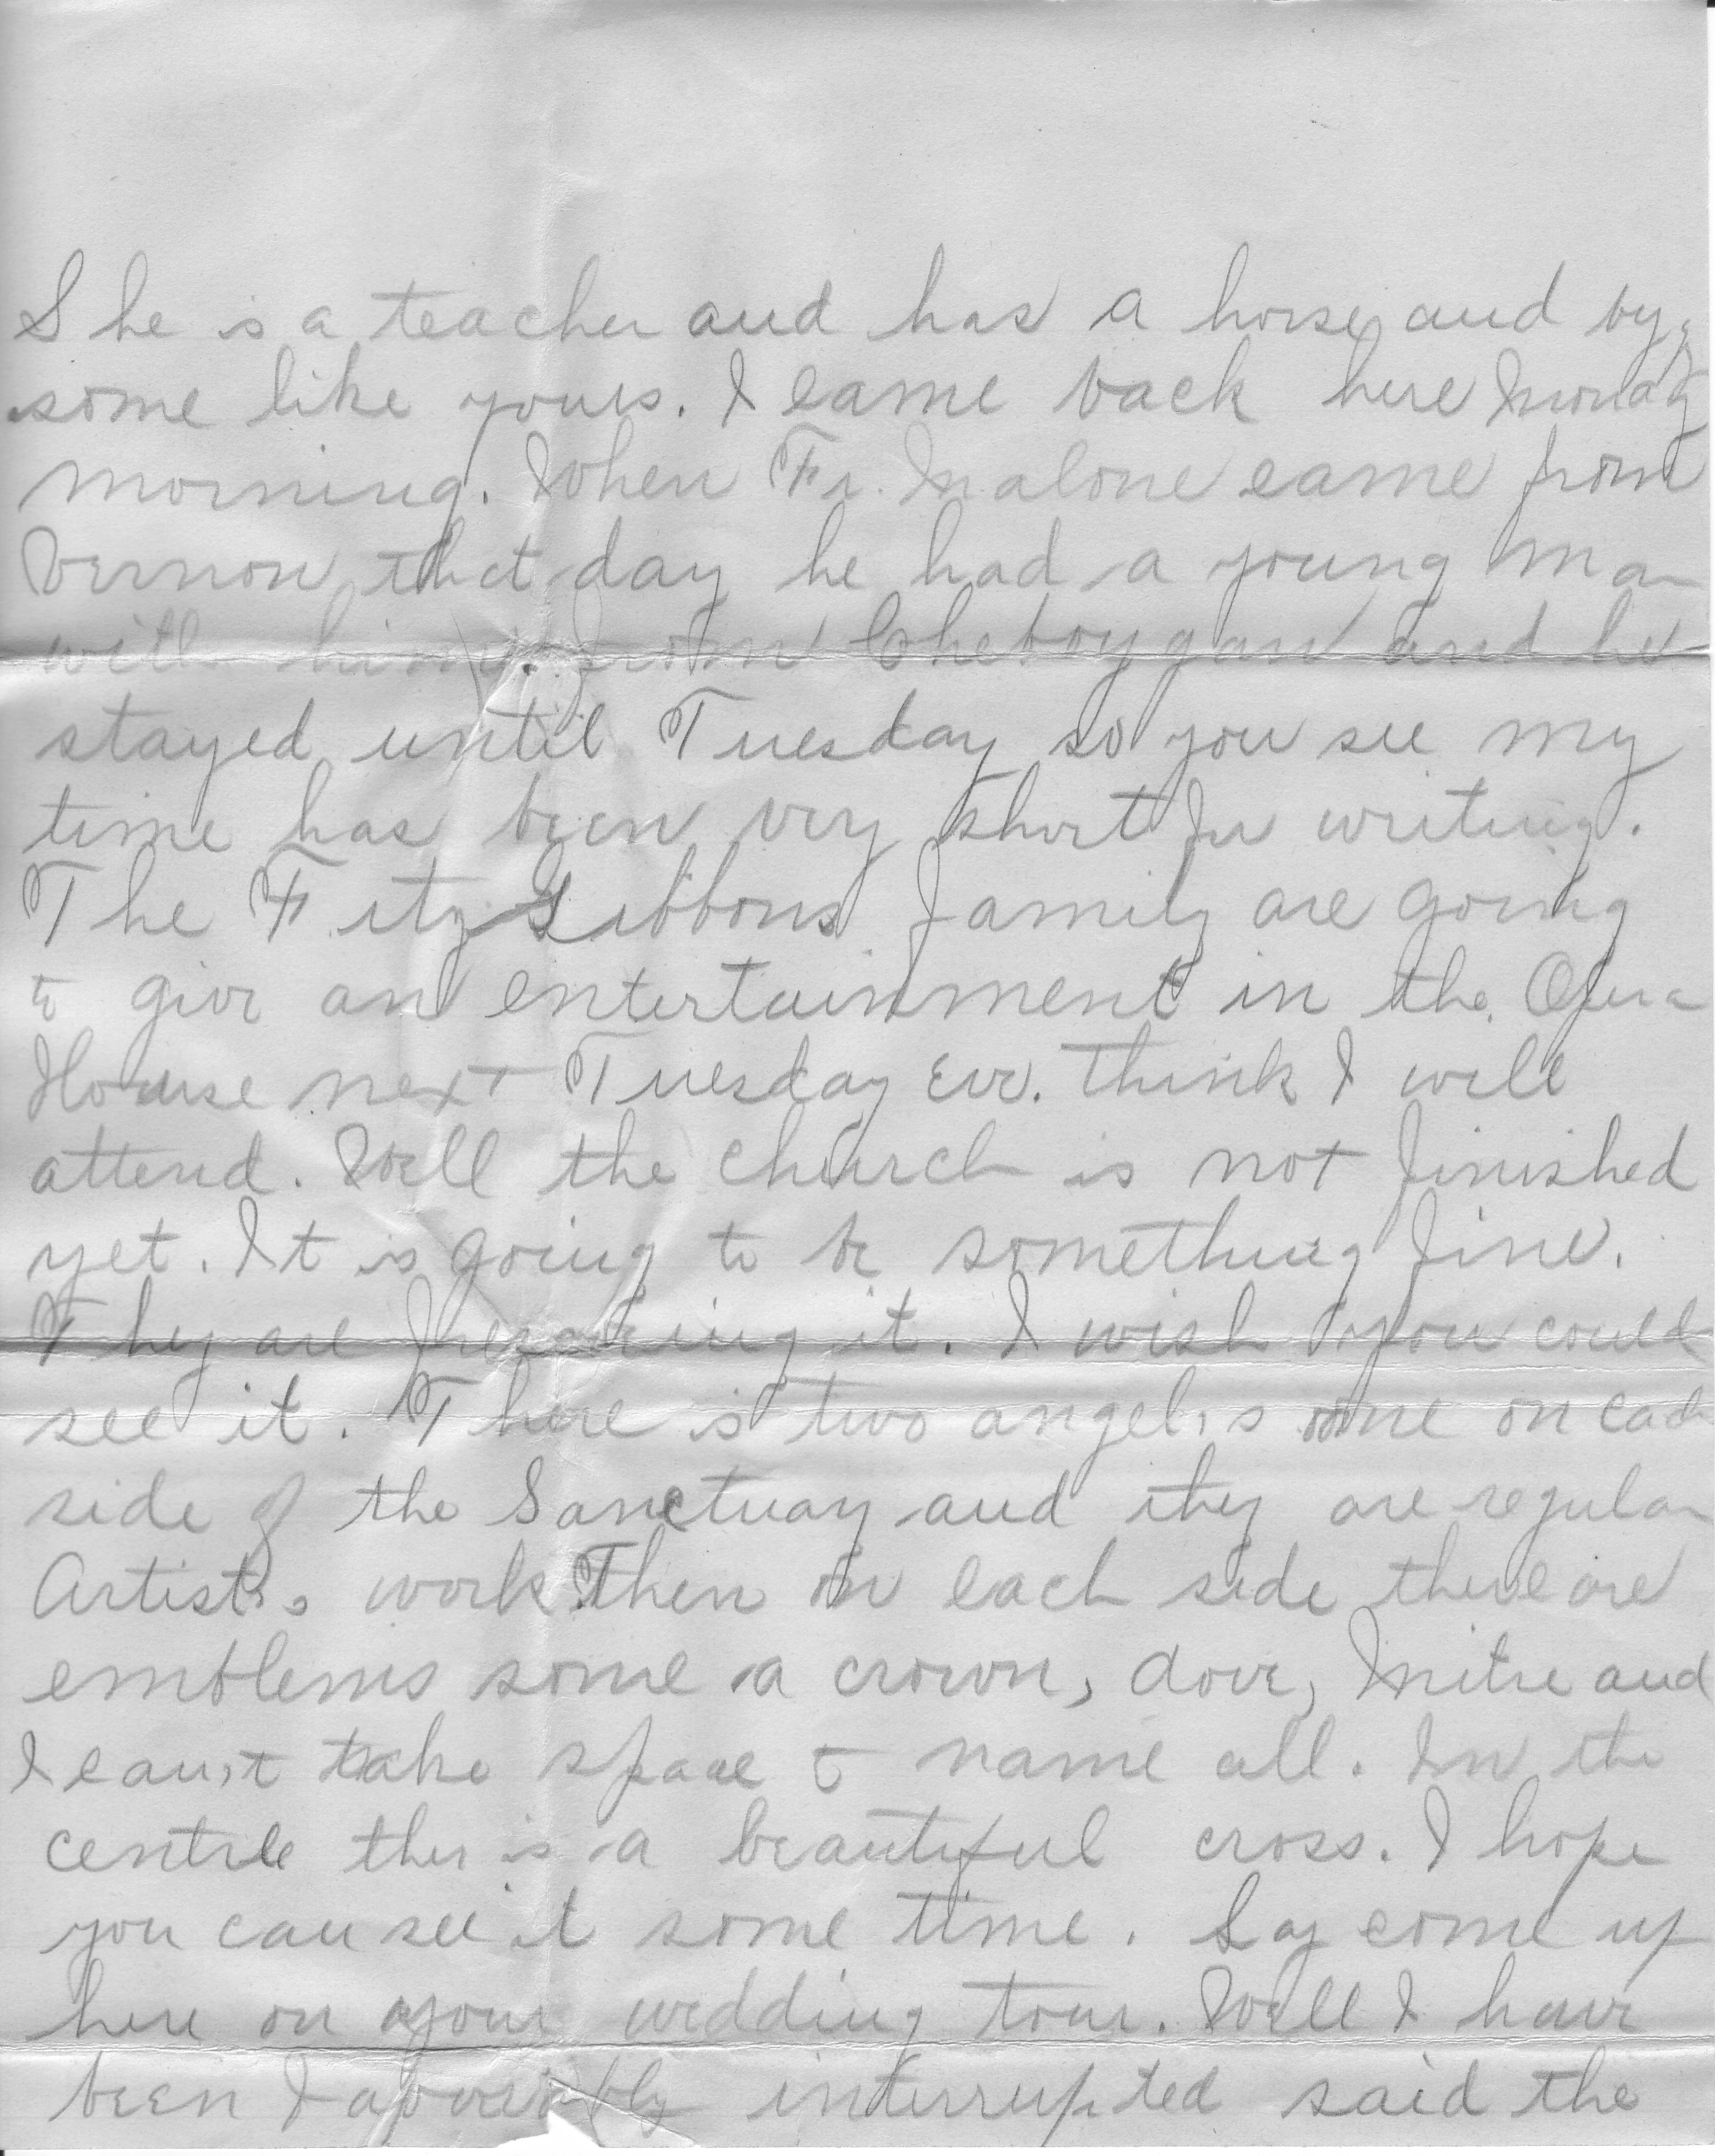 She is a teacher and has a horse and by
some like yours. I came back here Monday
morning. When Fr. Malone came from
Vernon that day he had a young man
with him from Cheboygan and he
stayed until Tuesday so you see my
time has been very short for writing.
The FitzGibbons family are going
to give an entertainment in the Opera
House next Tuesday Eve. Think I will
attend. Well the church is not finished
yet. It is going to be something fine.
They are frescoing it. I wish you could
see it. There is two angels one on each
side of the Sanctuay and they are regular
Artists work. Then on each side there are
emblems some a crown, dove, Mitre and
I can't take space to name all. In the
centre ther is a beautiful cross. I hope
you can see it some time. Say come up
here on your wedding tour. Well I have
been favorably interrupted said the